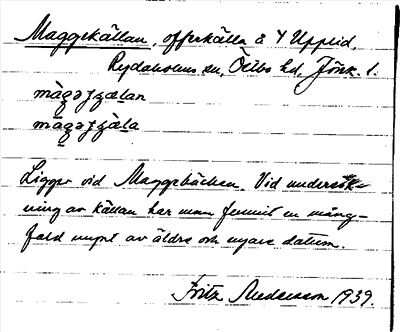 Maggekällan, offerkälla å 4 Upplid,
Rydaholms sn, Östbo hd, Jönk. l.
màgəʃɟälan
màgəʃɟäla
Ligger vid Maggebäcken. Vid undersök-
ning av källan har man funnit en mång-
fald mynt av äldre och nyare datum.
Fritz 1939.